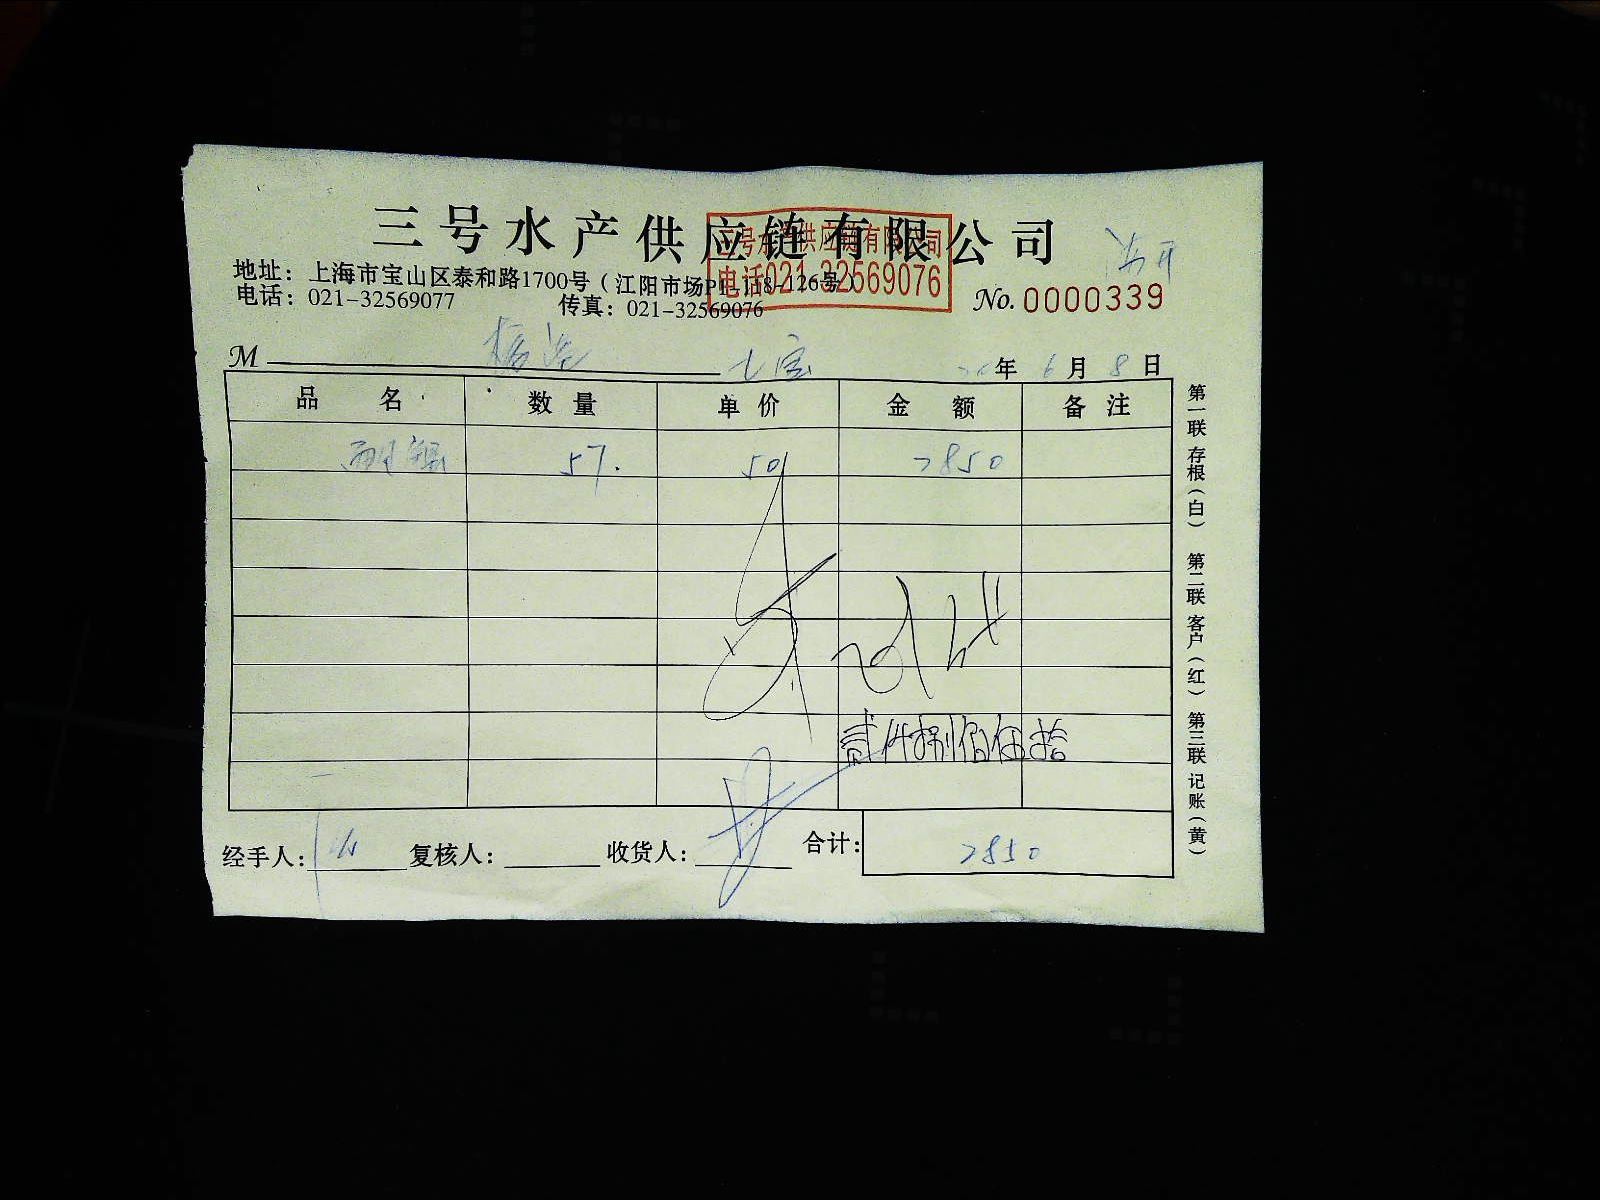 三号水产供应链有限公司
三号水产供应链有限公司
电话021-32569076
地址：上海市宝山区泰和路1700号（江阳市场P1-118-126号）
电话：021-32569077 传真：021-32569076
No. 0000339
M 七宝 20年6月8日
品名 数量 单价 金额 备注
57. 50 2850
贰仟捌佰伍拾
经手人： 复核人： 收货人： 合计： 2850
第一联 存根（白） 第二联 客户（红） 第三联 记账（黄）